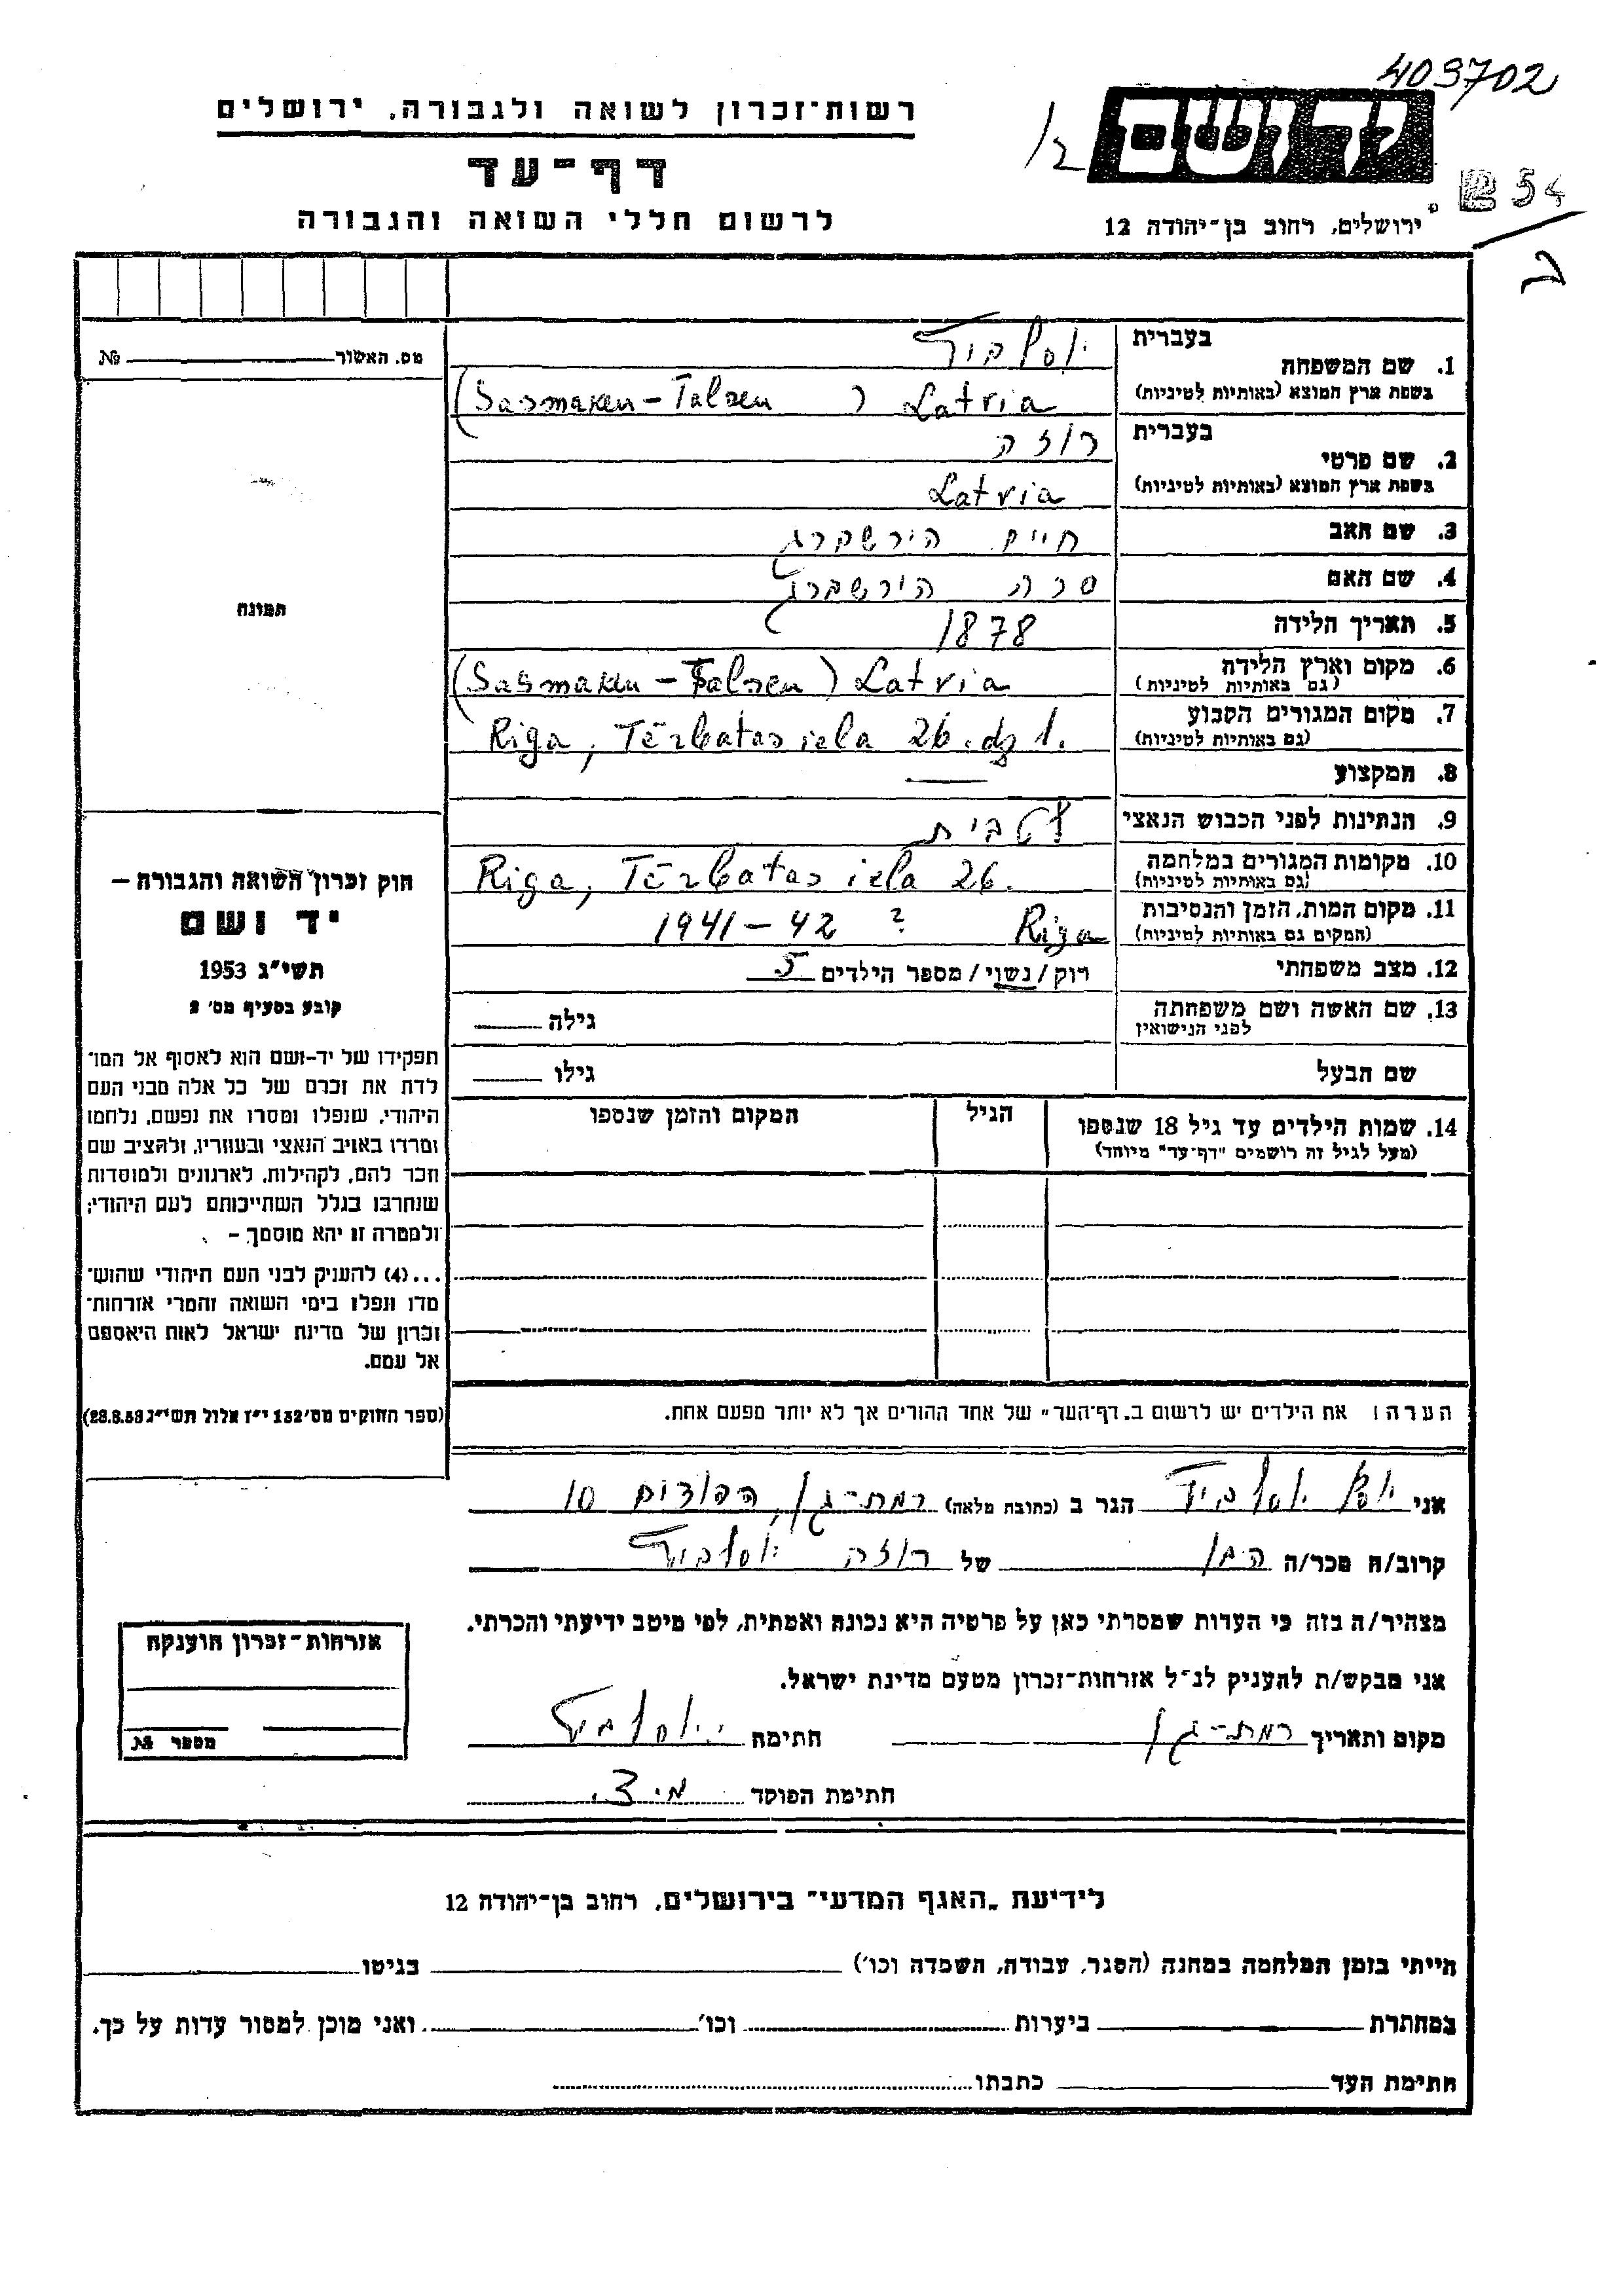 403702
רשות־זכרון לשואה ולגבורה, ירושלים
דף־עד
לרשום חללי השואה והגבורה
יד ושם
54
ירושלים, רחוב בן־יהודה 12
מס. האשור № 
1. שם המשפחה
בעברית
בשפת ארץ המוצא (באותיות לטיניות)
(Sasmaken - Talsen) Latvia
2. שם פרטי
בעברית רוזה
בשפת ארץ המוצא (באותיות לטיניות) Latvia
3. שם האב חיים הירשברג
4. שם האם שרה הירשברג
5. תאריך הלידה 1878
6. מקום וארץ הלידה
(גם באותיות לטיניות) (Sasmaken - Talsen) Latvia
7. מקום המגורים הקבוע
(גם באותיות לטיניות) Riga, Tērbatas iela 26. dz 1.
8. המקצוע —
9. הנתינות לפני הכבוש הנאצי לטבית
10. מקומות המגורים במלחמה
(גם באותיות לטיניות) Riga, Tērbatas iela 26.
11. מקום המות, הזמן והנסיבות
(המקום גם באותיות לטיניות) Riga ? 1941-42
12. מצב משפחתי רוק/נשוי/מספר הילדים 5
13. שם האשה ושם משפחתה
לפני הנישואין גילה
שם הבעל גילו
14. שמות הילדים עד גיל 18 שנספו
(מעל לגיל זה רושמים "דף־עד" מיוחד)
הגיל
המקום והזמן שנספו
הערה: את הילדים יש לרשום ב„דף־העד" של אחד ההורים אך לא יותר מפעם אחת.
תמונה
חוק זכרון השואה והגבורה —
יד ושם
תשי"ג 1953
קובע בסעיף מס׳ 2
תפקידו של יד-ושם הוא לאסוף אל המו־
לדת את זכרם של כל אלה מבני העם
היהודי, שנפלו ומסרו את נפשם, נלחמו
ומרדו באויב הנאצי ובעוזריו, ולהציב שם
וזכר להם, לקהילות, לארגונים ולמוסדות
שנחרבו בגלל השתייכותם לעם היהודי;
ולמטרה זו יהא מוסמך -
...(4) להעניק לבני העם היהודי שהוש־
מדו ונפלו בימי השואה והמרי אזרחות־
זכרון של מדינת ישראל לאות היאספם
אל עמם.
(ספר החוקים מס׳ 132 י"ז אלול תשי"ג 28.8.53)
אני הגר ב (כתובת מלאה) רמת-גן, הפודים 10
קרוב/ה מכר/ה הבן של רוזה
מצהיר/ה בזה כי העדות שמסרתי כאן על פרטיה היא נכונה ואמתית, לפי מיטב ידיעתי והכרתי.
אני מבקש/ת להעניק לנ"ל אזרחות־זכרון מטעם מדינת ישראל.
מקום ותאריך רמת-גן חתימה
חתימת הפוקד
אזרחות־זכרון הוענקה
מספר №
לידיעת „האגף המדעי" בירושלים, רחוב בן־יהודה 12
הייתי בזמן המלחמה במחנה (הסגר, עבודה, השמדה וכו׳) בגיטו
במחתרת ביערות וכו׳ ואני מוכן למסור עדות על כך.
חתימת העד כתבתו